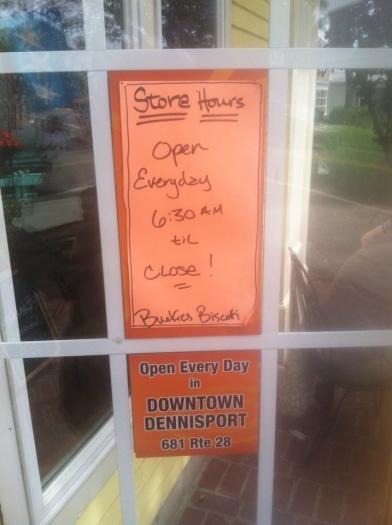 Store Hours
Open
Everyday
6:30 AM
til
Close!
Buckies Biscoti
Open Every Day
in
DOWNTOWN
DENNISPORT
681 Rte 28